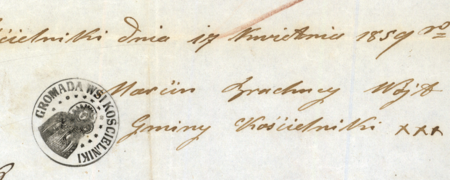 ścielniki dnia 17 Kwietnia 1859 ro
Marcin Grachcy Wójt
Gminy Kościelniki xxx
GROMADA WSI KOŚCIELNIKI